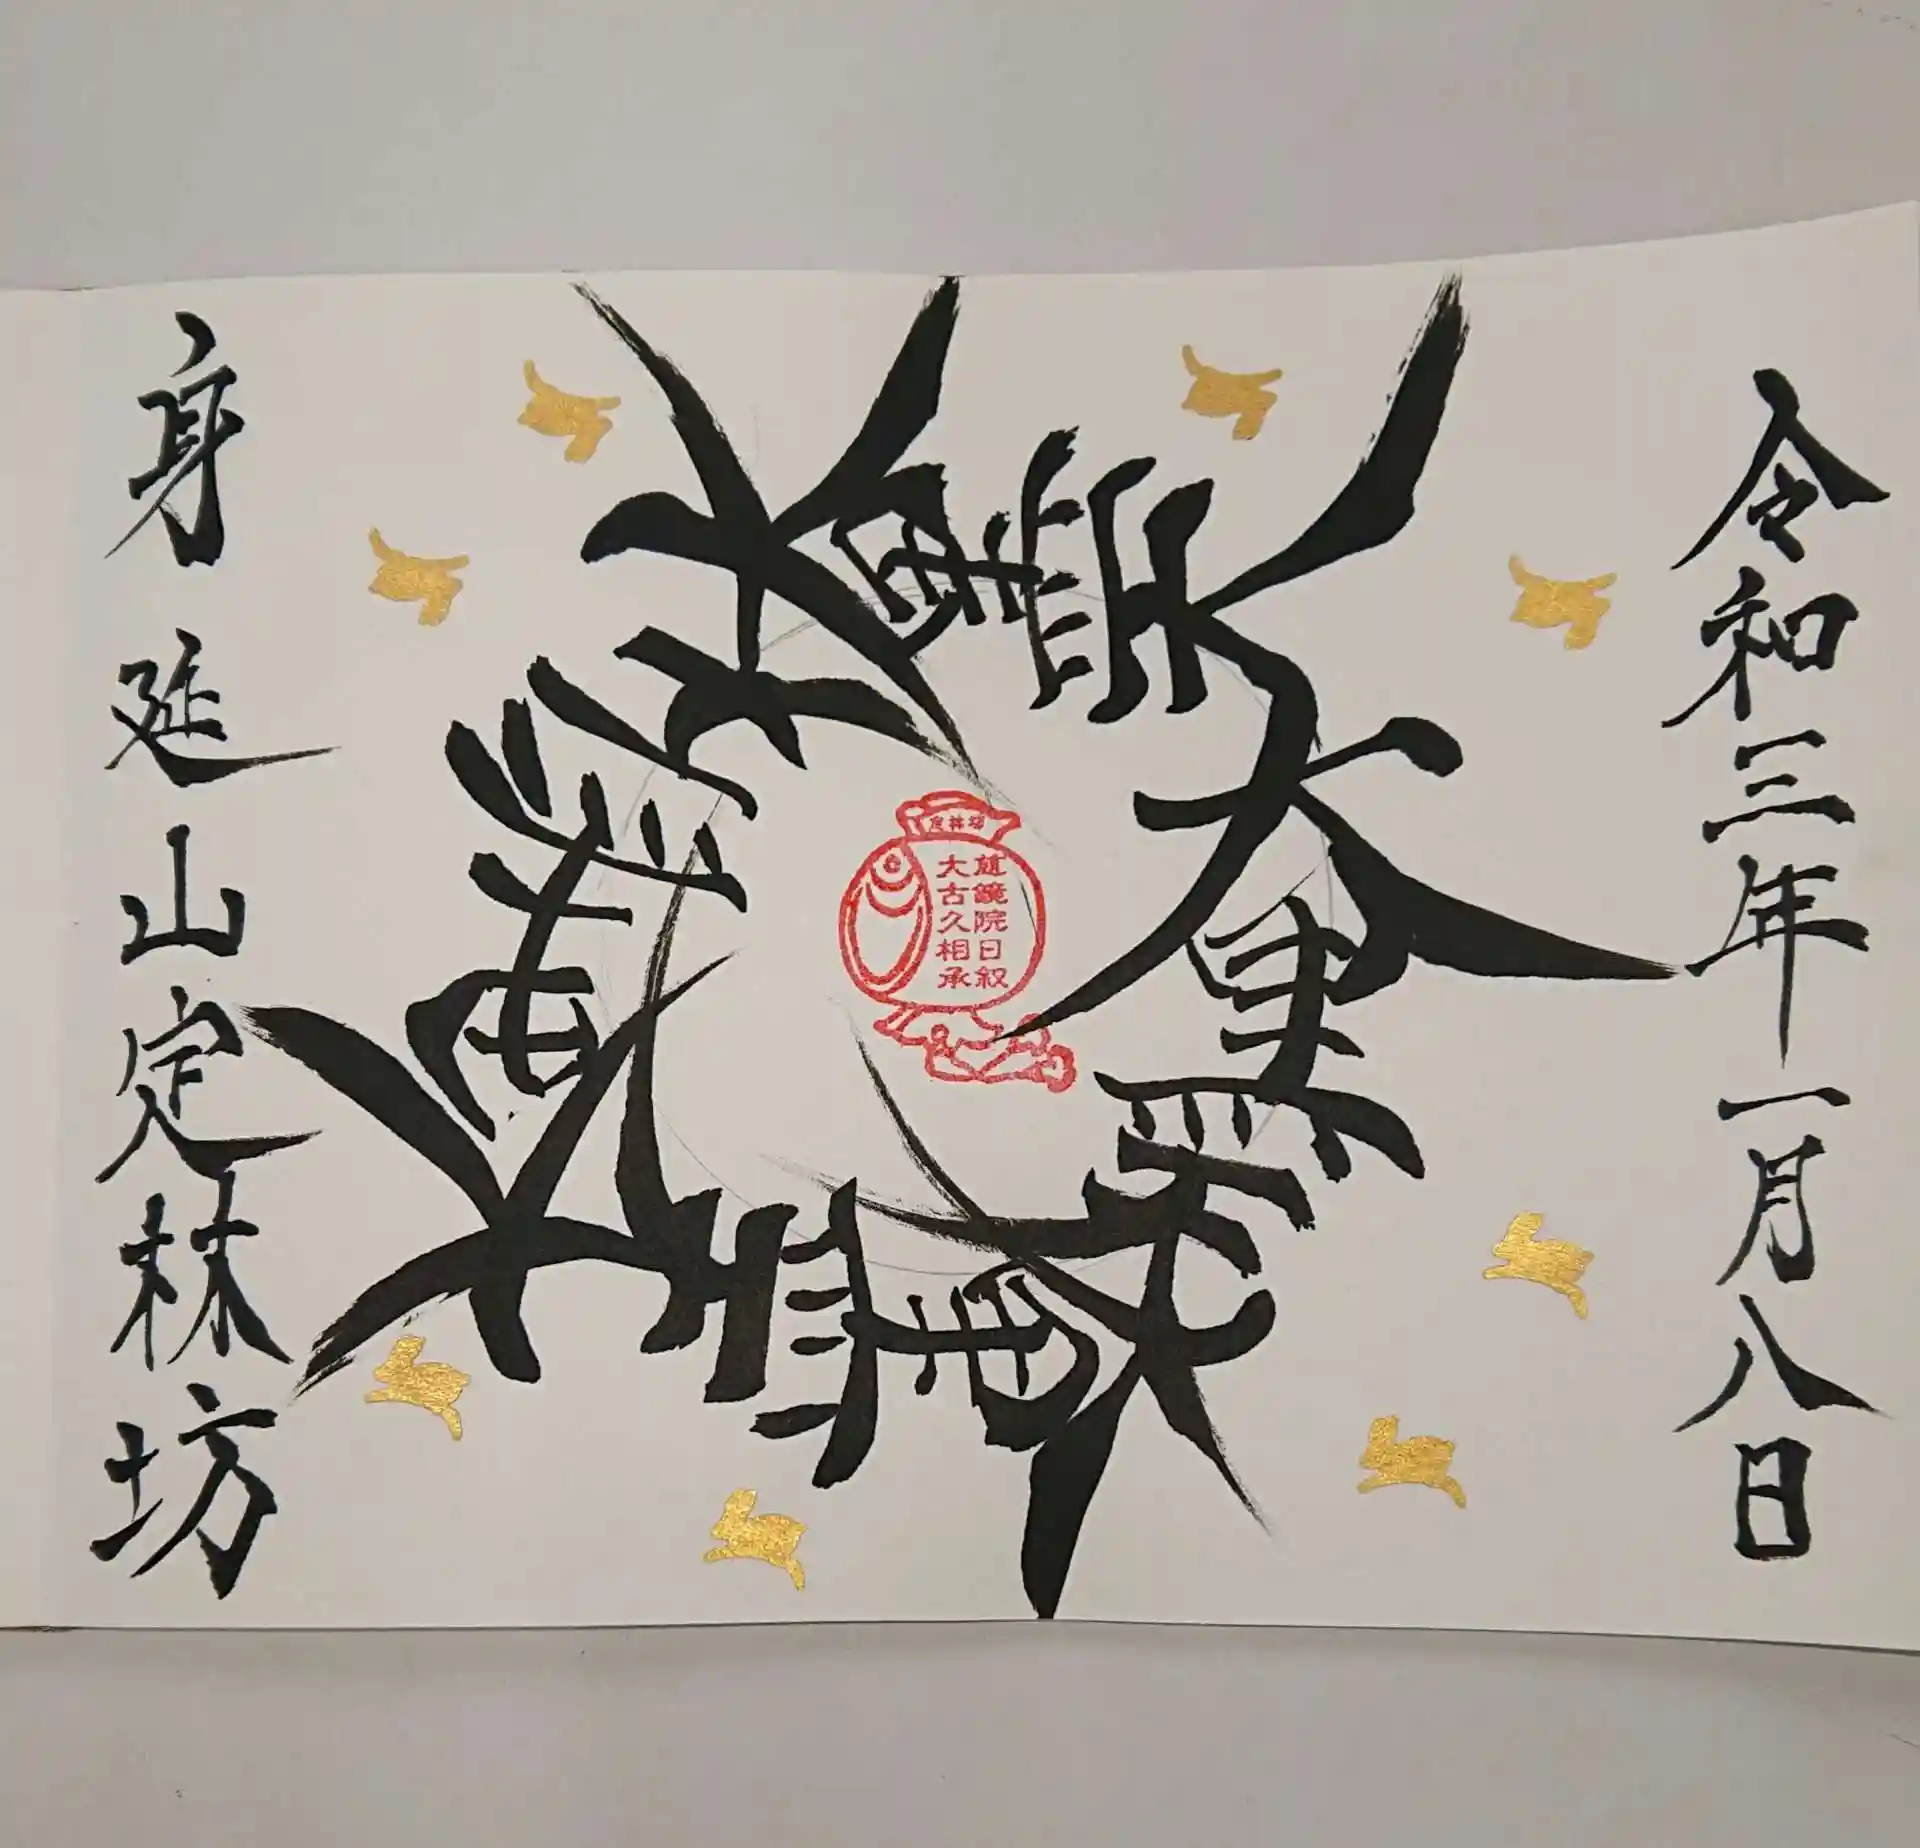 令和三年一月八日
大黒天
定林坊
慈鏡院日叙
大古久相承
身延山定林坊